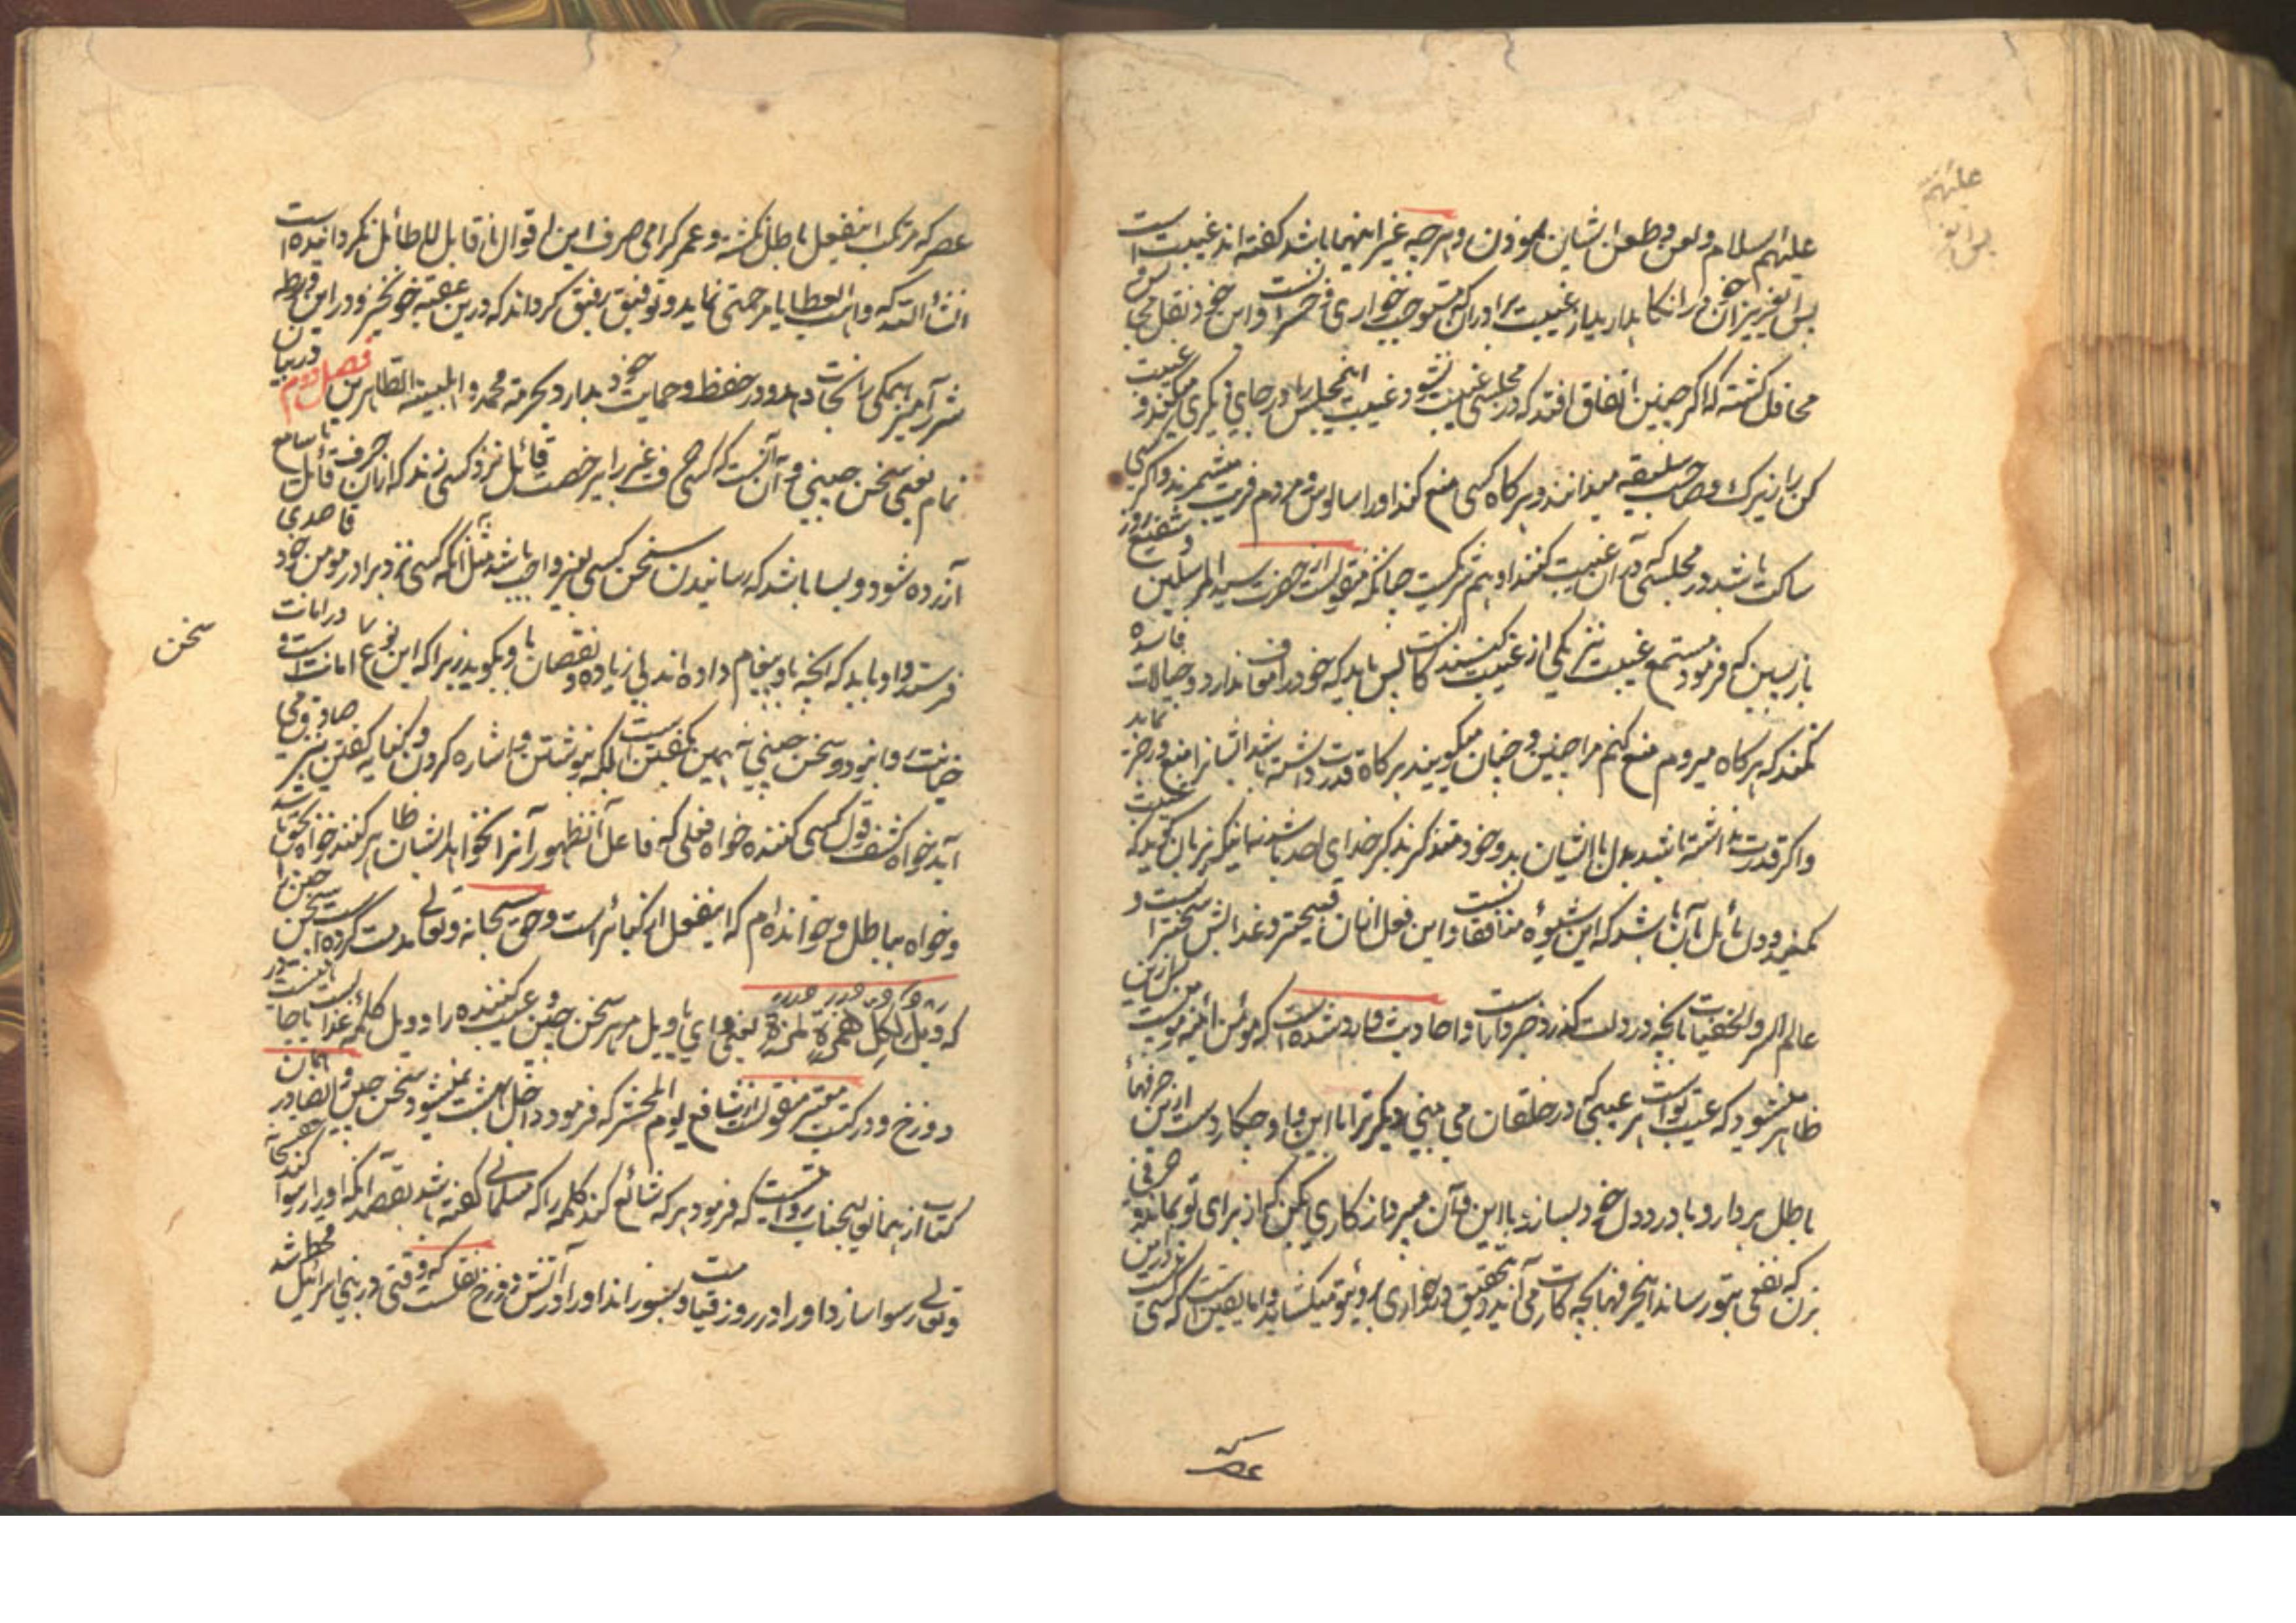 علیهم السلام و لعن و طعن ایشان نمودن و هرچه غیر اینها باشد گفته اند غیبت است
پس ای عزیز زبان خود را نگاه بدار از غیبت برادران که موجب خواری و
محافل گشته که اگر چنین اتفاق افتد که در مجلسی غیبت نشود و غیبت اینمجلس را در جای دیگری میکنند و غیبت
کن را زیرک و صاحب سلیقه میدانند و هرکاه کسی منع کند او را سالوس و مردم فریب میشمرند و اگر کسی
ساکت باشد در مجلسی که در آن غیبت کنند او هم شریکست چنانکه منقولست از حضرت سید المرسلین و شفیع روز
بازپسین که فرمود مستمع غیبت نیز یکی از غیبت کنندکانست پس باید که خود را معاف ندارد و خیالات فاسده
نکند که هرکاه میروم منع کنم مرا چنین و چنان میکویند هرکاه قدرت داشته باشد ایشانرا منع و زجر نماید
و اگر قدرت نداشته باشد بدل با ایشان بد و خود متذکر بذکر خدای احد باشد نه اینکه بزبان کوید که غیبت
نکنید و دل مائل بآن باشد که این شیوه منافقانست و این فعل از آن قبیحتر و عذابش سختر است و
عالم السر و الخفیات بآنچه در دلت گذرد خبردار است و احادیث وارد شده است که مؤمن آئینه مؤمن است
ظاهر میشود که عیب تو است هر عیبی که در خلقان می بینی دیگر ترا با این و او چکار دست از این حرفها
باطل بردار و با درد دل خود بساز و با این و آن مپرداز کاری بکن که از برای تو بماند و حرفی
بزن که نفعی بتو رساند اینحرفها بچه کارت می آید و بتحقیق در خواری بروی تو میکشاید و اما یقین است که کسی
عصر
عصر که مرتکب اینفعل باطل نکشته و عمر کرامی صرف این اقوال ناقابل لا طائل نکردانیده است
انشاء الله که واهب العطایا مرحمتی نماید و توفیق رفیق کرداند که درین عقبه خونخیز و در این ورطه
شر آمیز همکی را نجات دهد و در حفظ و حمایت خود بدارد بحرمة محمد و اهلبیته الطاهرین فصل دوم در بیان
نمام یعنی سخن چینی و آن آنست که کسی حرف غیر را بی رخصت قائل نزد کسی زند که از آن حرف قائل یا سامع
آزرده شود و بسا باشد که رسانیدن سخن کسی بغیر واجب باشد مثل آنکه کسی نزد برادر مومن خود قاصدی
فرستد و او باید که آنچه باو پیغام داده اند بی زیاده و نقصان باو بکوید زیرا که این نوع امانت است و در امانت
خیانت روا نبود و سخن چینی نه بهمین گفتن است بلکه بنوشتن و اشاره کردن و بکنایه گفتن نیز صادق می
آید خواه کشف قول کسی کننده خواه فعلی که فاعل آن ظهور آنرا نخواهد ایشان ظاهر کنند خواه بحق باشد
و خواه بباطل و خوانده ام که اینفعل از کبائر است و حق سبحانه و تعالی مذمت کرده است سخن چین را
که ویل لکل همزة لمزة یعنی وای یا ویل مر هر سخن چین و عیب کننده را و ویل کلمه عذابست یا جائیست در
دوزخ و در کتب معتبره منقولست از شافع یوم المحشر که فرمود داخل بهشت نمیشود سخن چین و ایضا در همان
کتاب از همان عالیجناب روایت است که فرمود هرکه شائع کند کلمه را که مسلمانی گفته باشد بقصد آنکه او را رسوا کند حق سبحانه
و تعالی رسوا سازد او را در روز قیامت و بسوزاند او را در آتش دوزخ نقلست که وقتی در بنی اسرائیل قحط شد
سخن